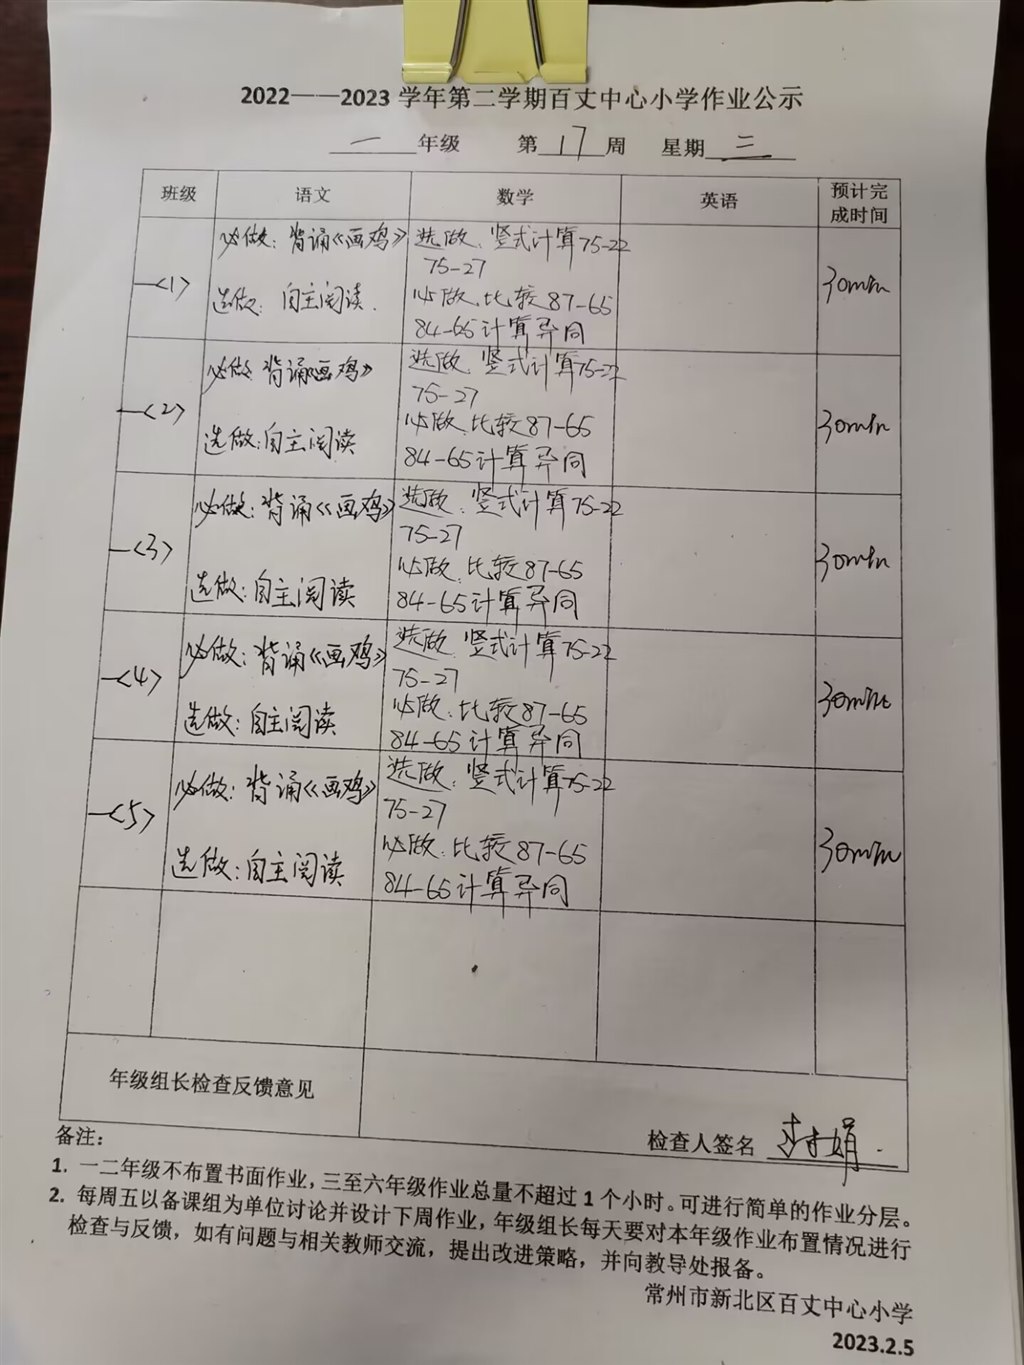 2022——2023 学年第二学期百丈中心小学作业公示
一 年级 第 17 周 星期 三
班级 语文 数学 英语 预计完成时间
一<1> 必做：背诵《画鸡》 选做：竖式计算75-22
75-27
选做：自主阅读. 必做：比较87-65
84-65计算异同
30min
一<2> 必做：背诵《画鸡》 选做：竖式计算75-22
75-27
选做：自主阅读 必做：比较87-65
84-65计算异同
30min
一<3> 必做：背诵《画鸡》 选做：竖式计算75-22
75-27
选做：自主阅读 必做：比较87-65
84-65计算异同
30min
一<4> 必做：背诵《画鸡》 选做：竖式计算75-22
75-27
选做：自主阅读 必做：比较87-65
84-65计算异同
30min
一<5> 必做：背诵《画鸡》 选做：竖式计算75-22
75-27
选做：自主阅读 必做：比较87-65
84-65计算异同
30min
年级组长检查反馈意见
检查人签名
备注：
1. 一二年级不布置书面作业，三至六年级作业总量不超过 1 个小时。可进行简单的作业分层。
2. 每周五以备课组为单位讨论并设计下周作业，年级组长每天要对本年级作业布置情况进行
检查与反馈，如有问题与相关教师交流，提出改进策略，并向教导处报备。
常州市新北区百丈中心小学
2023.2.5